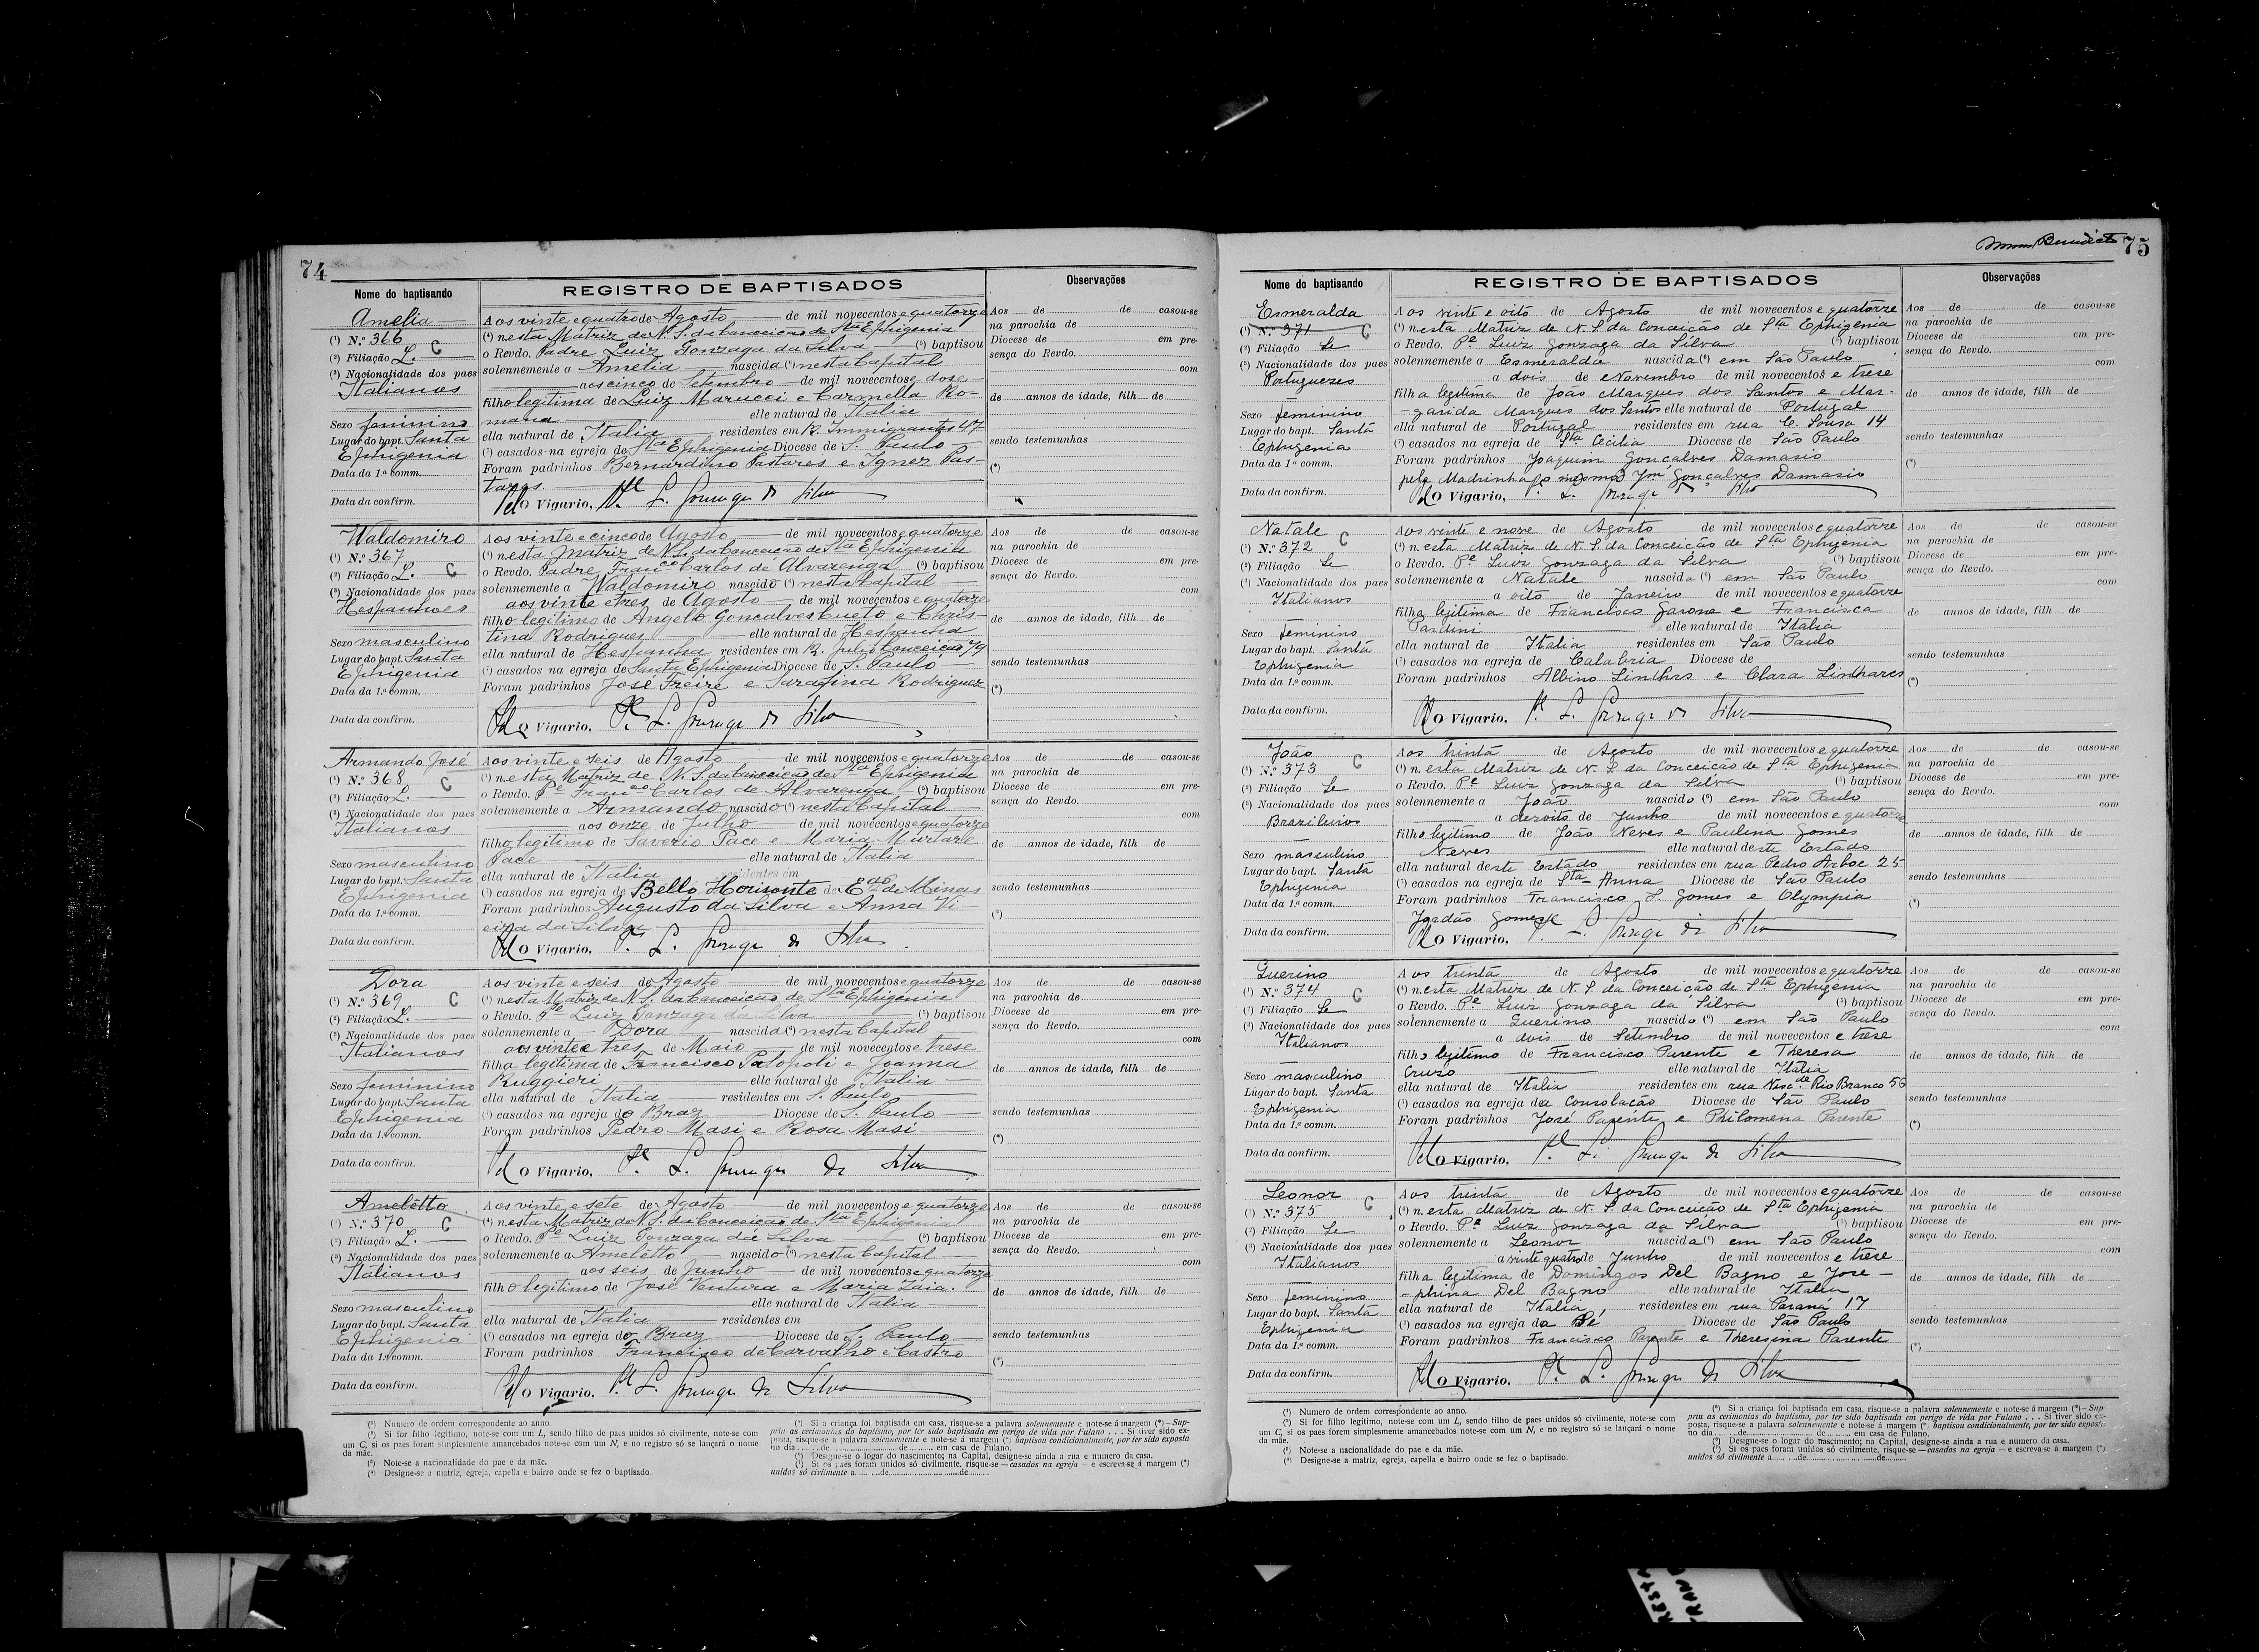 74
Nome do baptisando
REGISTRO DE BAPTISADOS
Observações
Amelia
(¹) N.º 366
C
(²) Filiação L.
(³) Nacionalidade dos paes
Italianos
Sexo feminino
Lugar do bapt. Santa
Ephigenia
Data da 1.ª comm.
Data da confirm.
Aos vinte e quatro de Agosto de mil novecentos e quatorze
(⁴) nesta Matriz de N. S. da Conceição de Sta Ephigenia
o Revdo. Padre Luiz Gonzaga da Silva (⁵) baptisou
solennemente a Amelia nascida (⁶) nesta Capital
aos cinco de Setembro de mil novecentos e dose
filha legitima de Luiz Marucci e Carmella Ro-
mana elle natural de Italia
ella natural de Italia residentes em R. Immigrantes 47
(⁷) casados na egreja de Sta Ephigenia Diocese de S. Paulo
Foram padrinhos Bernardino Pastares e Ignez Pas-
tares
Pelo Vigario, Pe L. Gonzaga da Silva
Aos de de casou-se
na parochia de
Diocese de em pre-
sença do Revdo.
com
de annos de idade, filh de
sendo testemunhas
(*)
Waldomiro
(¹) N.º 367
(²) Filiação L. C
(³) Nacionalidade dos paes
Hespanhoes
Sexo masculino
Lugar do bapt. Santa
Ephigenia
Data da 1.ª comm.
Data da confirm.
Aos vinte e cinco de Agosto de mil novecentos e quatorze
(⁴) nesta Matriz de N. S. da Conceição de Sta Ephigenia
o Revdo. Padre Franco Carlos de Alvarenga (⁵) baptisou
solennemente a Waldomiro nascido (⁶) nesta Capital
aos vinte e tres de Agosto de mil novecentos e quatorze
filho legitimo de Angelo Goncalves Cueto e Chris-
tina Rodrigues elle natural de Hespanha
ella natural de Hespanha residentes em R. Julio Conceição 79
(⁷) casados na egreja de Santa Ephigenia Diocese de S. Paulo
Foram padrinhos José Freire e Sarafina Rodriguez
Pelo Vigario, Pe L. Gonzaga da Silva
Aos de de casou-se
na parochia de
Diocese de em pre-
sença do Revdo.
com
de annos de idade, filh de
sendo testemunhas
(*)
Armando José
(¹) N.º 368
C
(²) Filiação L.
(³) Nacionalidade dos paes
Italianos
Sexo masculino
Lugar do bapt. Santa
Ephigenia
Data da 1.ª comm.
Data da confirm.
Aos vinte e seis de Agosto de mil novecentos e quatorze
(⁴) nesta Matriz de N. S. da Conceição de Sta Ephigenia
o Revdo. Pe Franco Carlos de Alvarenga (⁵) baptisou
solennemente a Armando nascido (⁶) nesta Capital
aos onze de Julho de mil novecentos e quatorze
filho legitimo de Saverio Pace e Maria Murtarl
Pace elle natural de Italia
ella natural de Italia residentes em
(⁷) casados na egreja de Bello Horisonte de Edo de Minas
Foram padrinhos Augusto da Silva e Anna Vi-
eira da Silva
Pelo Vigario, Pe L. Gonzaga da Silva
Aos de de casou-se
na parochia de
Diocese de em pre-
sença do Revdo.
com
de annos de idade, filh de
sendo testemunhas
(*)
Dora
(¹) N.º 369 C
(²) Filiação L.
(³) Nacionalidade dos paes
Italianos
Sexo feminino
Lugar do bapt. Santa
Ephigenia
Data da 1.ª comm.
Data da confirm.
Aos vinte e seis de Agosto de mil novecentos e quatorze
(⁴) nesta Matriz de N. S. da Conceição de Sta Ephigenia
o Revdo. Pe Luiz Gonzaga da Silva (⁵) baptisou
solennemente a Dora nascida (⁶) nesta Capital
aos vinte e tres de Maio de mil novecentos e trese
filha legitima de Francisco Patopoli e Joanna
Ruggieri elle natural de Italia
ella natural de Italia residentes em S. Paulo
(⁷) casados na egreja do Braz Diocese de S. Paulo
Foram padrinhos Pedro Masi e Rosa Masi
Pelo Vigario, Pe L. Gonzaga da Silva
Aos de de casou-se
na parochia de
Diocese de em pre-
sença do Revdo.
com
de annos de idade, filh de
sendo testemunhas
(*)
Amelétto
(¹) N.º 370 C
(²) Filiação L.
(³) Nacionalidade dos paes
Italianos
Sexo masculino
Lugar do bapt. Santa
Ephigenia
Data da 1.ª comm.
Data da confirm.
Aos vinte e sete de Agosto de mil novecentos e quatorze
(⁴) nesta Matriz de N. S. da Conceição de Sta Ephigenia
o Revdo. Pe Luiz Gonzaga da Silva (⁵) baptisou
solennemente a Amelétto nascido (⁶) nesta Capital
aos seis de Junho de mil novecentos e quatorze
filho legitimo de José Ventura e Maria Zaia.
elle natural de Italia
ella natural de Italia residentes em
(⁷) casados na egreja do Braz Diocese de S. Paulo
Foram padrinhos Francisco de Carvalho e Castro
Pelo Vigario, Pe L. Gonzaga da Silva
Aos de de casou-se
na parochia de
Diocese de em pre-
sença do Revdo.
com
de annos de idade, filh de
sendo testemunhas
(*)
(¹) Numero de ordem correspondente ao anno.
(²) Si for filho legitimo, note-se com um L, sendo filho de paes unidos só civilmente, note-se com
um C, si os paes forem simplesmente amancebados note-se com um N, e no registro só se lançará o nome
da mãe.
(³) Note-se a nacionalidade do pae e da mãe.
(⁴) Designe-se a matriz, egreja, capella e bairro onde se fez o baptisado.
(⁵) Si a criança foi baptisada em casa, risque-se a palavra solennemente e note-se á margem (*) – Sup-
priu as cerimonias do baptismo, por ter sido baptisada em perigo de vida por Fulano . . . Si tiver sido ex-
posta, risque-se a palavra solennemente e note-se á margem (*) baptisou condicionalmente, por ter sido exposta
no dia de de em casa de Fulano.
(⁶) Designe-se o logar do nascimento; na Capital, designe-se ainda a rua e numero da casa.
(⁷) Si os paes foram unidos só civilmente, risque-se — casados na egreja — e escreva-se á margem (*)
unidos só civilmente a de de
Benedicto
75
Nome do baptisando
REGISTRO DE BAPTISADOS
Observações
Esmeralda
(¹) N.º 371 C
(²) Filiação Le
(³) Nacionalidade dos paes
Portuguezes
Sexo feminino
Lugar do bapt. Santa
Ephigenia
Data da 1.ª comm.
Data da confirm.
Aos vinte e oito de Agosto de mil novecentos e quatorze
(⁴) nesta Matriz de N. S. da Conceição de Sta Ephigenia
o Revdo. Pe Luiz Gonzaga da Silva (⁵) baptisou
solennemente a Esmeralda nascida (⁶) em São Paulo
a dois de Novembro de mil novecentos e trese
filha legitima de João Marques dos Santos e Mar-
-garida Marques dos Santos elle natural de Portugal
ella natural de Portugal residentes em rua C. Sousa 14
(⁷) casados na egreja de Sta Cecilia Diocese de São Paulo
Foram padrinhos Joaquim Goncalves Damasio
pela Madrinha o mesmo Jm Gonçalves Damasio
Pelo Vigario, Pe L. Gonzaga da Silva
Aos de de casou-se
na parochia de
Diocese de em pre-
sença do Revdo.
com
de annos de idade, filh de
sendo testemunhas
(*)
Natale
(¹) N.º 372 C
(²) Filiação Le
(³) Nacionalidade dos paes
Italianos
Sexo feminino
Lugar do bapt. Santa
Ephigenia
Data da 1.ª comm.
Data da confirm.
Aos vinte e nove de Agosto de mil novecentos e quatorze
(⁴) nesta Matriz de N. S. da Conceição de Sta Ephigenia
o Revdo. Pe Luiz Gonzaga da Silva (⁵) baptisou
solennemente a Natale nascida (⁶) em São Paulo
a oito de Janeiro de mil novecentos e quatorze
filha legitima de Francisco Garone e Francisca
Pardini elle natural de Italia
ella natural de Italia residentes em São Paulo
(⁷) casados na egreja de Calabria Diocese de
Foram padrinhos Albino Linthrs e Clara Linhares
Pelo Vigario, Pe L. Gonzaga da Silva
Aos de de casou-se
na parochia de
Diocese de em pre-
sença do Revdo.
com
de annos de idade, filh de
sendo testemunhas
(*)
João
(¹) N.º 373 C
(²) Filiação Le
(³) Nacionalidade dos paes
Brazileiros
Sexo masculino
Lugar do bapt. Santa
Ephigenia
Data da 1.ª comm.
Data da confirm.
Aos trinta de Agosto de mil novecentos e quatorze
(⁴) nesta Matriz de N. S. da Conceição de Sta Ephigenia
o Revdo. Pe Luiz Gonzaga da Silva (⁵) baptisou
solennemente a João nascido (⁶) em São Paulo
a dezoito de Junho de mil novecentos e quatorze
filho legitimo de João Neves e Paulina Gomes
Neves elle natural deste Estado
ella natural deste Estado residentes em rua Pedro Arboe 25
(⁷) casados na egreja de Sta Anna Diocese de São Paulo
Foram padrinhos Francisco S. Gomes e Olympia
Jordão Gomes
Pelo Vigario, Pe L. Gonzaga da Silva
Aos de de casou-se
na parochia de
Diocese de em pre-
sença do Revdo.
com
de annos de idade, filh de
sendo testemunhas
(*)
Guerino
(¹) N.º 374 C
(²) Filiação Le
(³) Nacionalidade dos paes
Italianos
Sexo masculino
Lugar do bapt. Santa
Ephigenia
Data da 1.ª comm.
Data da confirm.
Aos trinta de Agosto de mil novecentos e quatorze
(⁴) nesta Matriz de N. S. da Conceição de Sta Ephigenia
o Revdo. Pe Luiz Gonzaga da Silva (⁵) baptisou
solennemente a Guerino nascido (⁶) em São Paulo
a dois de Setembro de mil novecentos e trese
filho legitimo de Francisco Parente e Theresa
Cruso elle natural de Italia
ella natural de Italia residentes em rua Visc.de Rio Branco 56
(⁷) casados na egreja da Consolação Diocese de São Paulo
Foram padrinhos José Parente e Philomena Parente
Pelo Vigario, Pe L. Gonzaga da Silva
Aos de de casou-se
na parochia de
Diocese de em pre-
sença do Revdo.
com
de annos de idade, filh de
sendo testemunhas
(*)
Leonor C
(¹) N.º 375
(²) Filiação Le
(³) Nacionalidade dos paes
Italianos
Sexo feminino
Lugar do bapt. Santa
Ephigenia
Data da 1.ª comm.
Data da confirm.
Aos trinta de Agosto de mil novecentos e quatorze
(⁴) nesta Matriz de N. S. da Conceição de Sta Ephigenia
o Revdo. Pe Luiz Gonzaga da Silva (⁵) baptisou
solennemente a Leonor nascida (⁶) em São Paulo
a vinte quatro de Junho de mil novecentos e trese
filha legitima de Domingos Del Bagno e Jose-
-phina Del Bagno elle natural de Italia
ella natural de Italia residentes em rua Paraná 17
(⁷) casados na egreja da Sé Diocese de São Paulo
Foram padrinhos Francisco Parente e Theresina Parente
Pelo Vigario, Pe L. Gonzaga da Silva
Aos de de casou-se
na parochia de
Diocese de em pre-
sença do Revdo.
com
de annos de idade, filh de
sendo testemunhas
(*)
(¹) Numero de ordem correspondente ao anno.
(²) Si for filho legitimo, note-se com um L, sendo filho de paes unidos só civilmente, note-se com
um C, si os paes forem simplesmente amancebados note-se com um N, e no registro só se lançará o nome
da mãe.
(³) Note-se a nacionalidade do pae e da mãe.
(⁴) Designe-se a matriz, egreja, capella e bairro onde se fez o baptisado.
(⁵) Si a criança foi baptisada em casa, risque-se a palavra solennemente e note-se á margem (*) – Sup-
priu as cerimonias do baptismo, por ter sido baptisada em perigo de vida por Fulano . . . Si tiver sido ex-
posta, risque-se a palavra solennemente e note-se á margem (*) baptisou condicionalmente, por ter sido exposta
no dia de de em casa de Fulano.
(⁶) Designe-se o logar do nascimento; na Capital, designe-se ainda a rua e numero da casa.
(⁷) Si os paes foram unidos só civilmente, risque-se — casados na egreja — e escreva-se á margem (*)
unidos só civilmente a de de